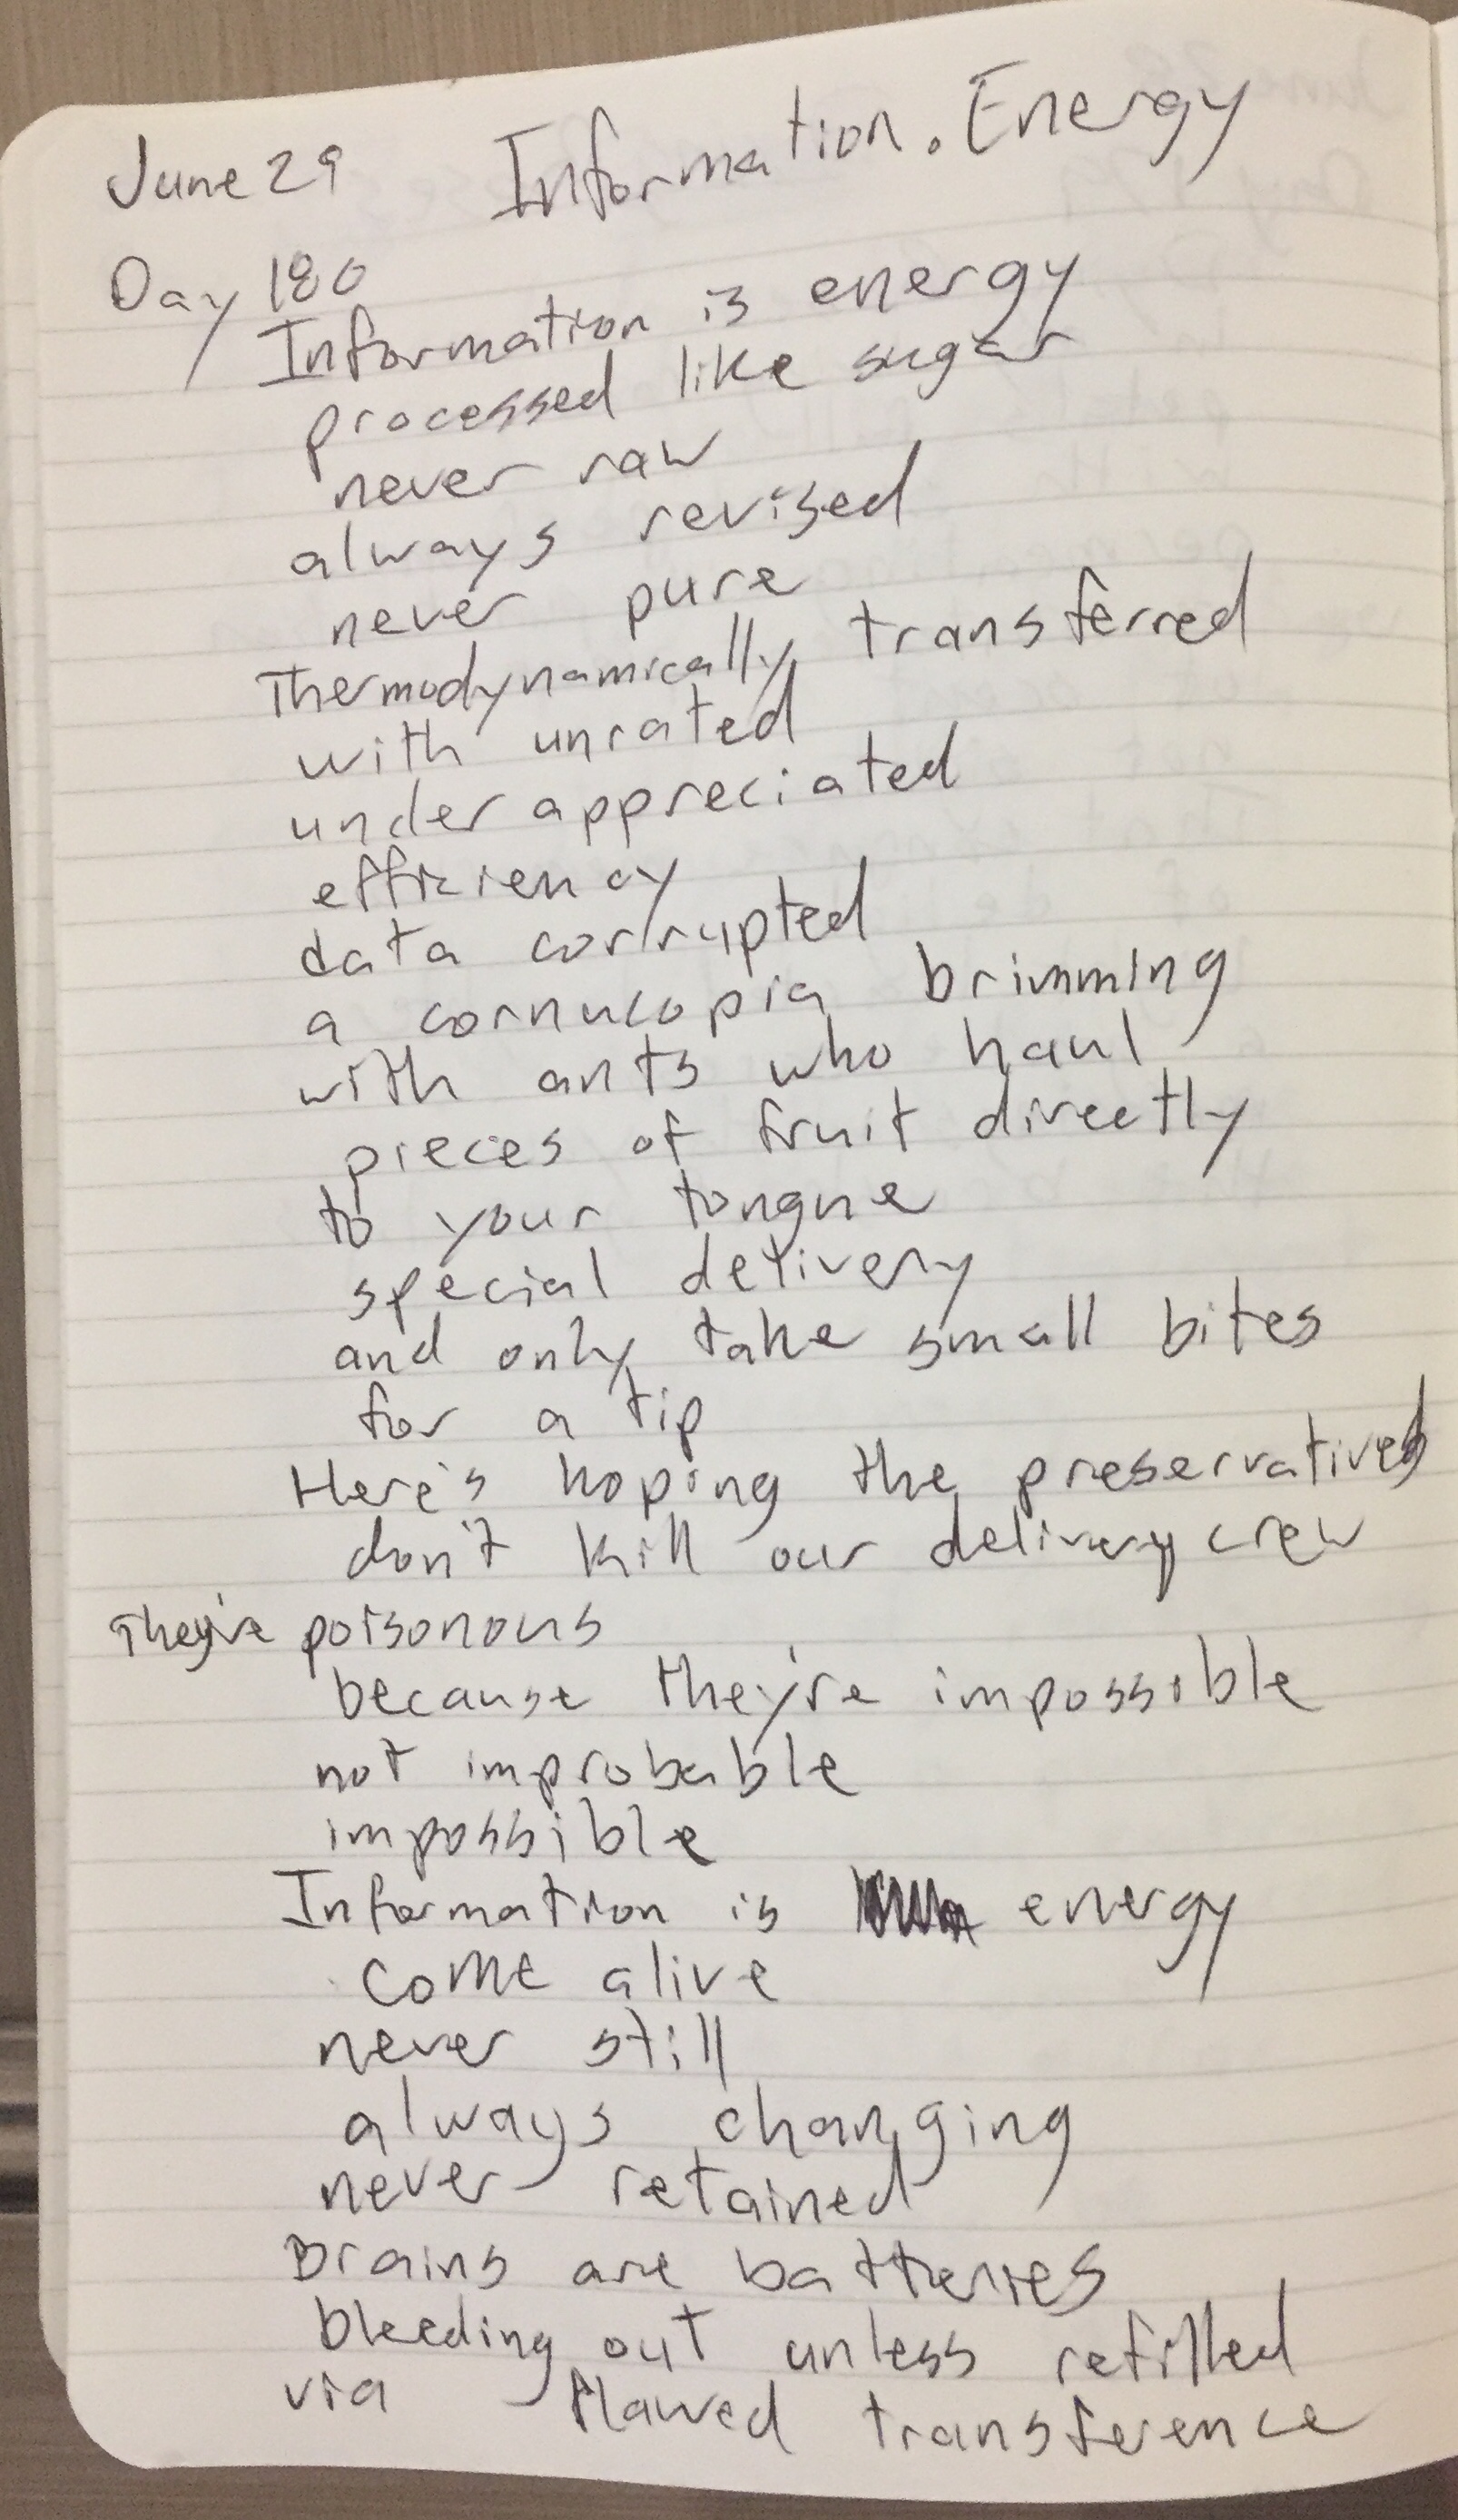 June 29 Information. Energy
Day 180
Information is energy
processed like sugar
never raw
always revised
never pure
Thermodynamically transferred
with unrated
underappreciated
efficiency
data corrupted
a cornucopia brimming
with ants who haul
pieces of fruit directly
to your tongue
special delivery
and only take small bites
for a tip
Here's hoping the preservatives
don't kill our delivery crew
They're poisonous
because they're impossible
not improbable
impossible
Information is energy
come alive
never still
always changing
never retained
Brains are batteries
bleeding out unless refilled
via flawed transference